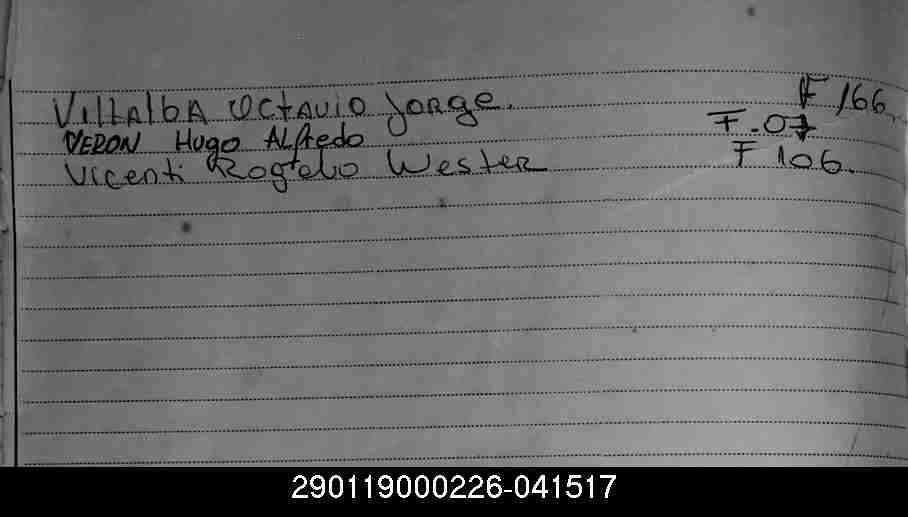 Villalba Octavio Jorge. F 166.
VERON Hugo Alfredo F.07
Vicenti Rogelio Wester F 106.
290119000226-041517